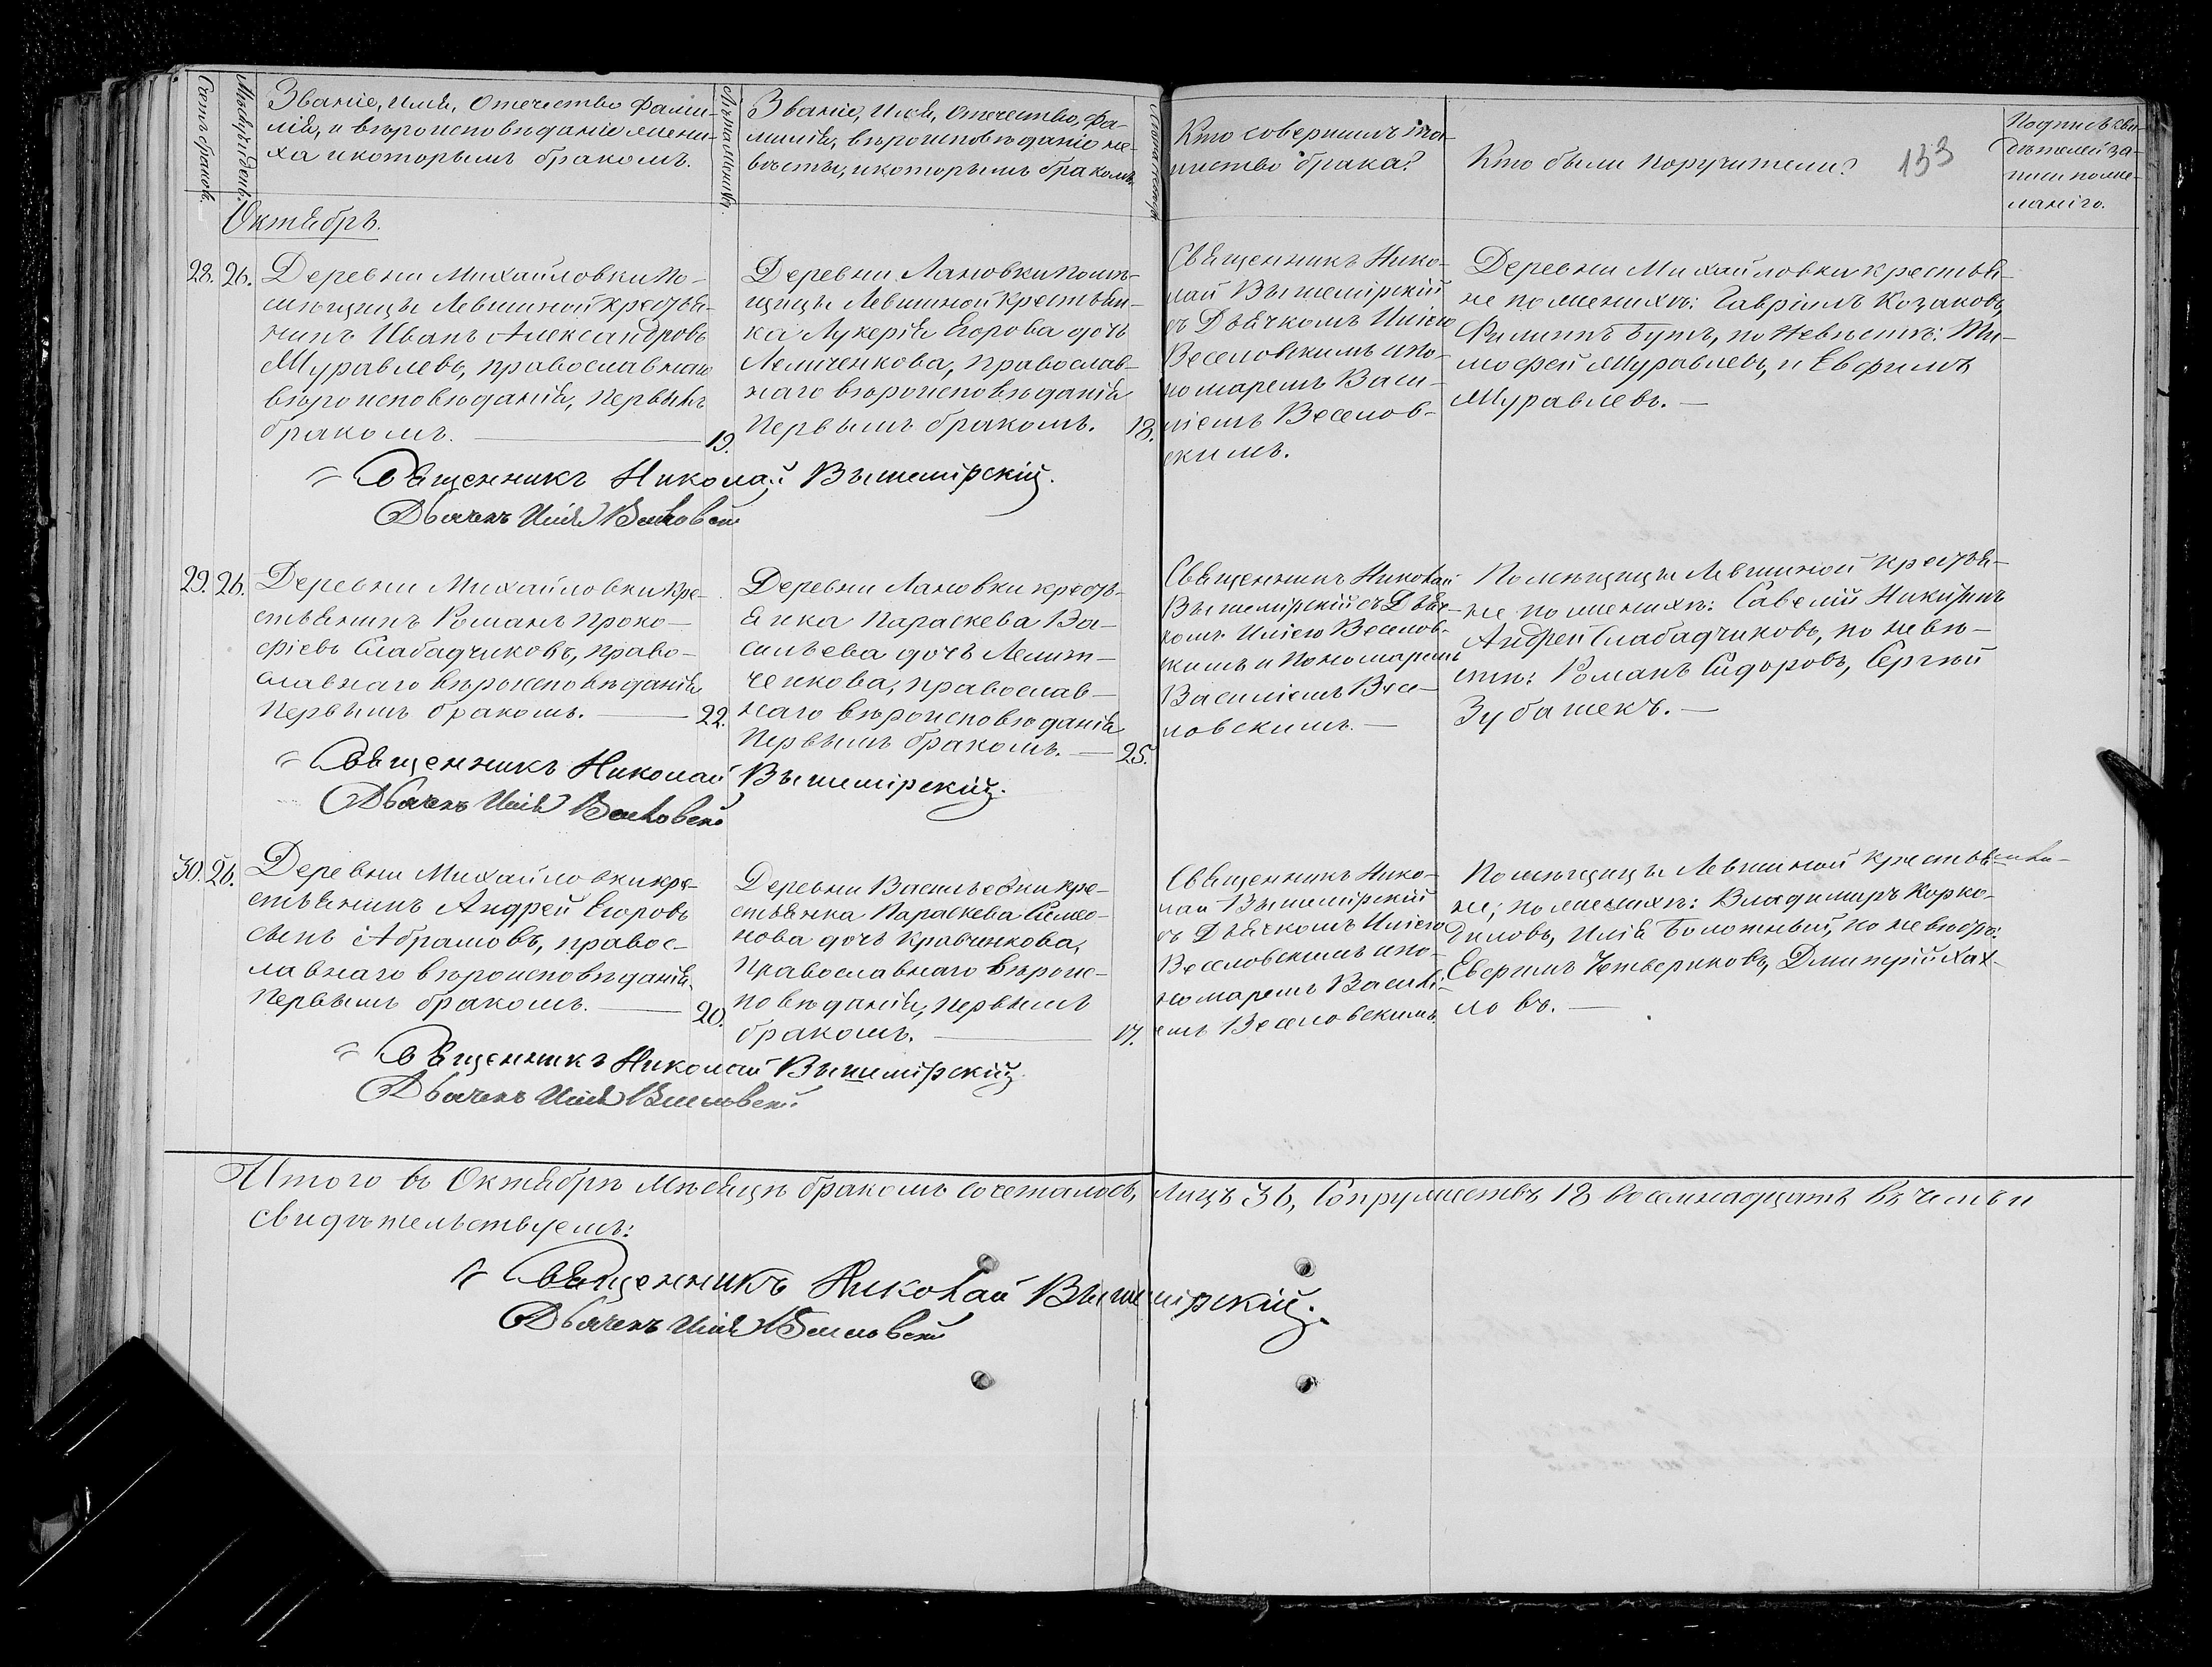 Счетъ браковъ.
Мѣсяцъ и день.
Званіе, имя, отечество фами-
лія, и вѣроисповѣданіе жени-
ха и которымъ бракомъ.
Лѣта жениха.
Званіе, имя, отечество, фа-
милія, вѣроисповѣданіе не-
вѣсты, и которымъ бракомъ.
Кто совершилъ таи-
нство брака?
Кто были поручители?
133
Подпись сви-
дѣтелей за-
писи по же-
ланію.
Октябрь.
28. 26.
Деревни Михайловки по-
мѣщицы Левшиной крестья-
нинъ Иванъ Александровъ
Муравлевъ, православнаго
вѣроисповѣданія, первымъ
бракомъ. — 19.
Деревни Лановки помѣ-
щицы Левшиной крестьян-
ка Лукерія Егорова дочь
Лемшенкова, православ-
наго вѣроисповѣданія
первымъ бракомъ. 18.
Священникъ Нико-
лай Вышемірскій
съ Дьячкомъ Иліею
Веселовскимъ и по-
номаремъ Васи-
ліемъ Веселов-
скимъ.
Деревни Михайловки крестья-
не по женихѣ: Гавріилъ Козаковъ,
Филиппъ Бутъ, по невѣстѣ: Ти-
мофей Муравлевъ, и Евфимъ
Муравлевъ. —
Священникъ Николай Вышемірскій.
Дьячекъ Илія Веселовскій
29. 26.
Деревни Михайловки кре-
стьянинъ Романъ Проко-
фіевъ Слабадчиковъ, право-
славнаго вѣроисповѣданія
первымъ бракомъ. — 22.
Деревни Лановки кресть-
янка Параскева Ва-
сильева дочь Лемит-
ченкова, православ-
наго вѣроисповѣданія
первымъ бракомъ. — 25.
Священникъ Николай
Вышемірскій съ Дьяч-
комъ Иліею Веселов-
скимъ и Пономаремъ
Василіемъ Весе-
ловскимъ. —
Помѣщицы Левшиной крестья-
не по женихѣ: Савелій Никитинъ
Андрей Слабадчиковъ, по невѣ-
стѣ: Романъ Сидоровъ, Сергѣй
Зубашекъ. —
Священникъ Николай Вышемірскій.
Дьячекъ Илія Веселовскій
30. 26.
Деревни Михайловки кре-
стьянинъ Андрей Егоровъ
сынъ Абрамовъ, правос-
лавнаго вѣроисповѣданія.
первымъ бракомъ. — 20.
Деревни Васильевки кре-
стьянка Параскева Симео-
нова дочь Кравченкова,
Православнаго вѣроис-
повѣданія, первымъ
бракомъ. — 17.
Священникъ Нико-
лай Вышемірскій
съ Дьячкомъ Иліею
Веселовскимъ и по-
номаремъ Васили-
емъ Веселовскимъ.
Помѣщицы Левшиной крестья-
не; по женихѣ: Владимиръ Корко-
диловъ, Илія Болотный, по невѣстѣ:
Евфимъ Четвериковъ, Дмитрій Хах-
ловъ. —
Священникъ Николай Вышемірскій
Дьячекъ Илія Веселовскій
Итого въ Октябрѣ мѣсяцѣ бракомъ сочеталось, лицъ 36, Супружествъ 18 восемнадцать въ чемъ и
свидѣтельствуемъ:
Священникъ Николай Вышемірскій.
Дьячекъ Илія Веселовскій